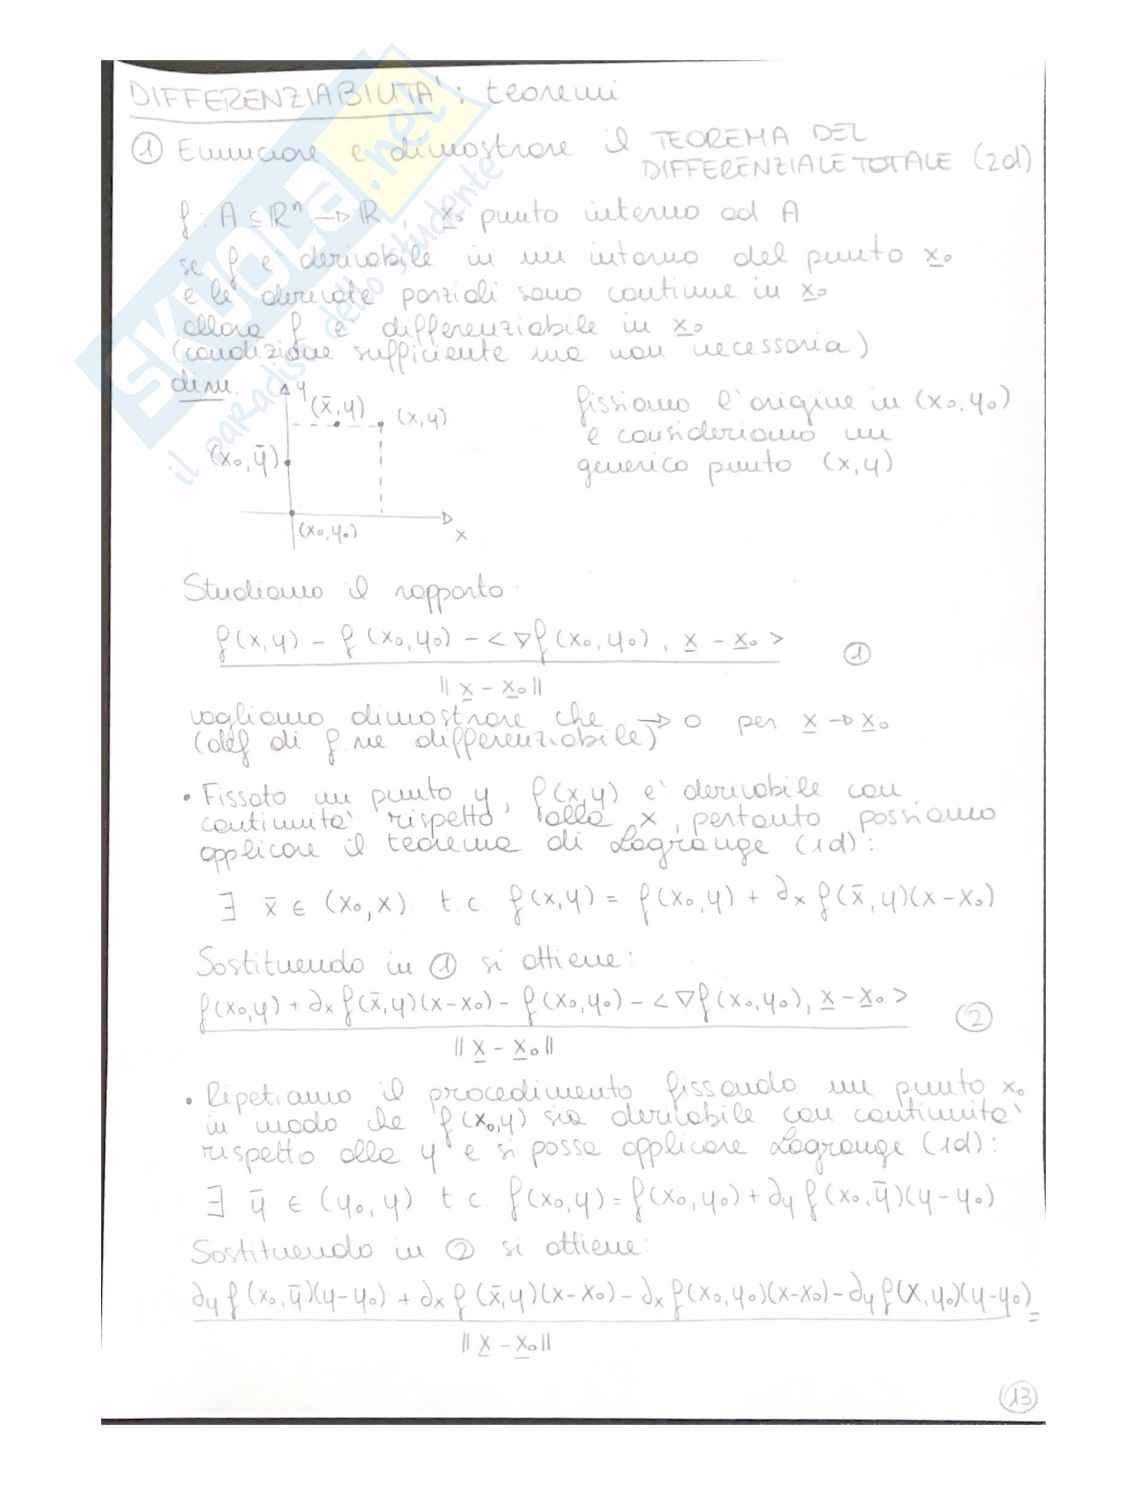 DIFFERENZIABILITA' : teoremi
① Enunciare e dimostrare il TEOREMA DEL
DIFFERENZIALE TOTALE (2d)
f : A ⊆ ℝⁿ → ℝ x₀ punto interno ad A
se f è derivabile in un intorno del punto x₀
e le derivate parziali sono continue in x₀
allora f è differenziabile in x₀
(condizione sufficiente ma non necessaria)
dim.
y
(x̄,y)
(x,y)
(x₀,ȳ)
(x₀,y₀)
x
fissiamo l'origine in (x₀,y₀)
e consideriamo un
generico punto (x,y)
Studiamo il rapporto
f(x,y) - f(x₀,y₀) - <∇f(x₀,y₀), x - x₀>
①
|| x - x₀ ||
vogliamo dimostrare che → 0 per x → x₀
(def di f.ne differenziabile)
• Fissato un punto y, f(x,y) e' derivabile con
continuita' rispetto alla x, pertanto possiamo
applicare il teorema di Lagrange (1d):
∃ x̄ ∈ (x₀,x) t.c. f(x,y) = f(x₀,y) + ∂x f(x̄,y)(x-x₀)
Sostituendo in ① si ottiene:
f(x₀,y) + ∂x f(x̄,y)(x-x₀) - f(x₀,y₀) - <∇f(x₀,y₀), x - x₀>
②
|| x - x₀ ||
• Ripetiamo il procedimento fissando un punto x₀
in modo che f(x₀,y) sia derivabile con continuita'
rispetto alla y e si possa applicare Lagrange (1d):
∃ ȳ ∈ (y₀,y) t.c. f(x₀,y) = f(x₀,y₀) + ∂y f(x₀,ȳ)(y-y₀)
Sostituendo in ② si ottiene:
∂y f(x₀,ȳ)(y-y₀) + ∂x f(x̄,y)(x-x₀) - ∂x f(x₀,y₀)(x-x₀) - ∂y f(x,y₀)(y-y₀) =
|| x - x₀ ||
⑬
SKUOLA.net
il paradiso dello studente